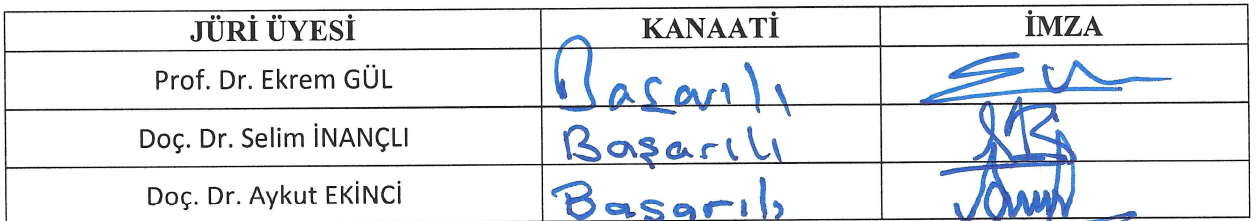 JÜRİ ÜYESİ KANAATİ İMZA
Prof. Dr. Ekrem GÜL Başarılı
Doç. Dr. Selim İNANÇLI Başarılı
Doç. Dr. Aykut EKİNCİ Başarılı